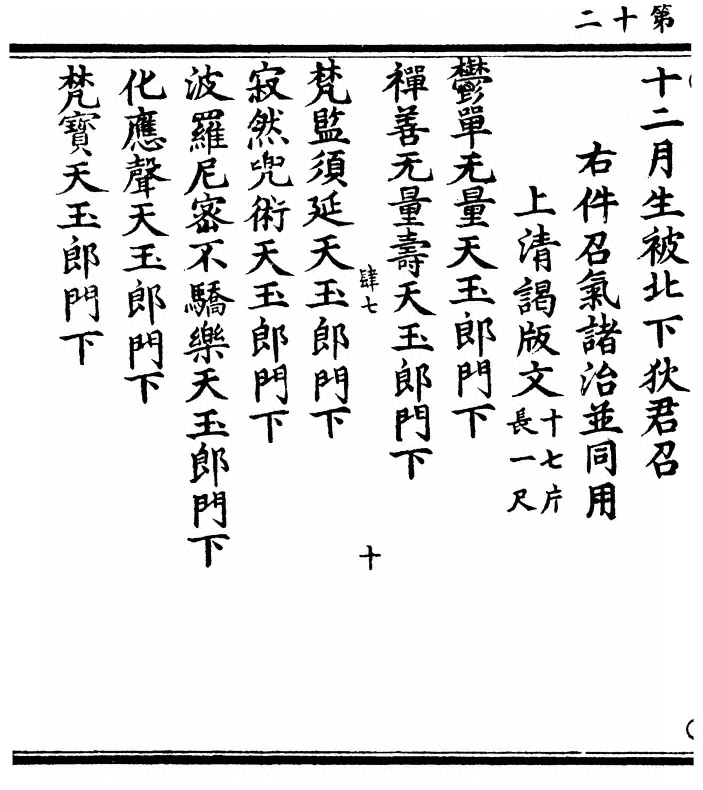 第十二
十二月生被北下狄君召
右件召氣諸治並同用
上清謁版文十七片長一尺
鬱單无量天玉郎門下
禪善无量壽天玉郎門下
肆七 十
梵監須延天玉郎門下
寂然兜術天玉郎門下
波羅尼密不驕樂天玉郎門下
化應聲天玉郎門下
梵寶天玉郎門下